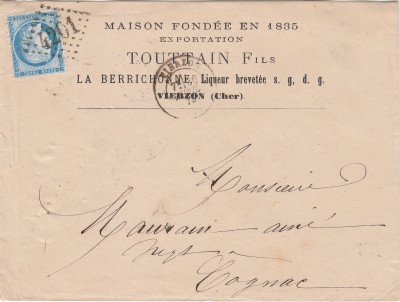 4201
MAISON FONDÉE EN 1835
EXPORTATION
TOUTTAIN FILS
LA BERRICHONNE, Liqueur brevetée s. g. d. g.
VIERZON (Cher)
VIERZON
Monsieur
Maurain ainé
Négt à
Cognac